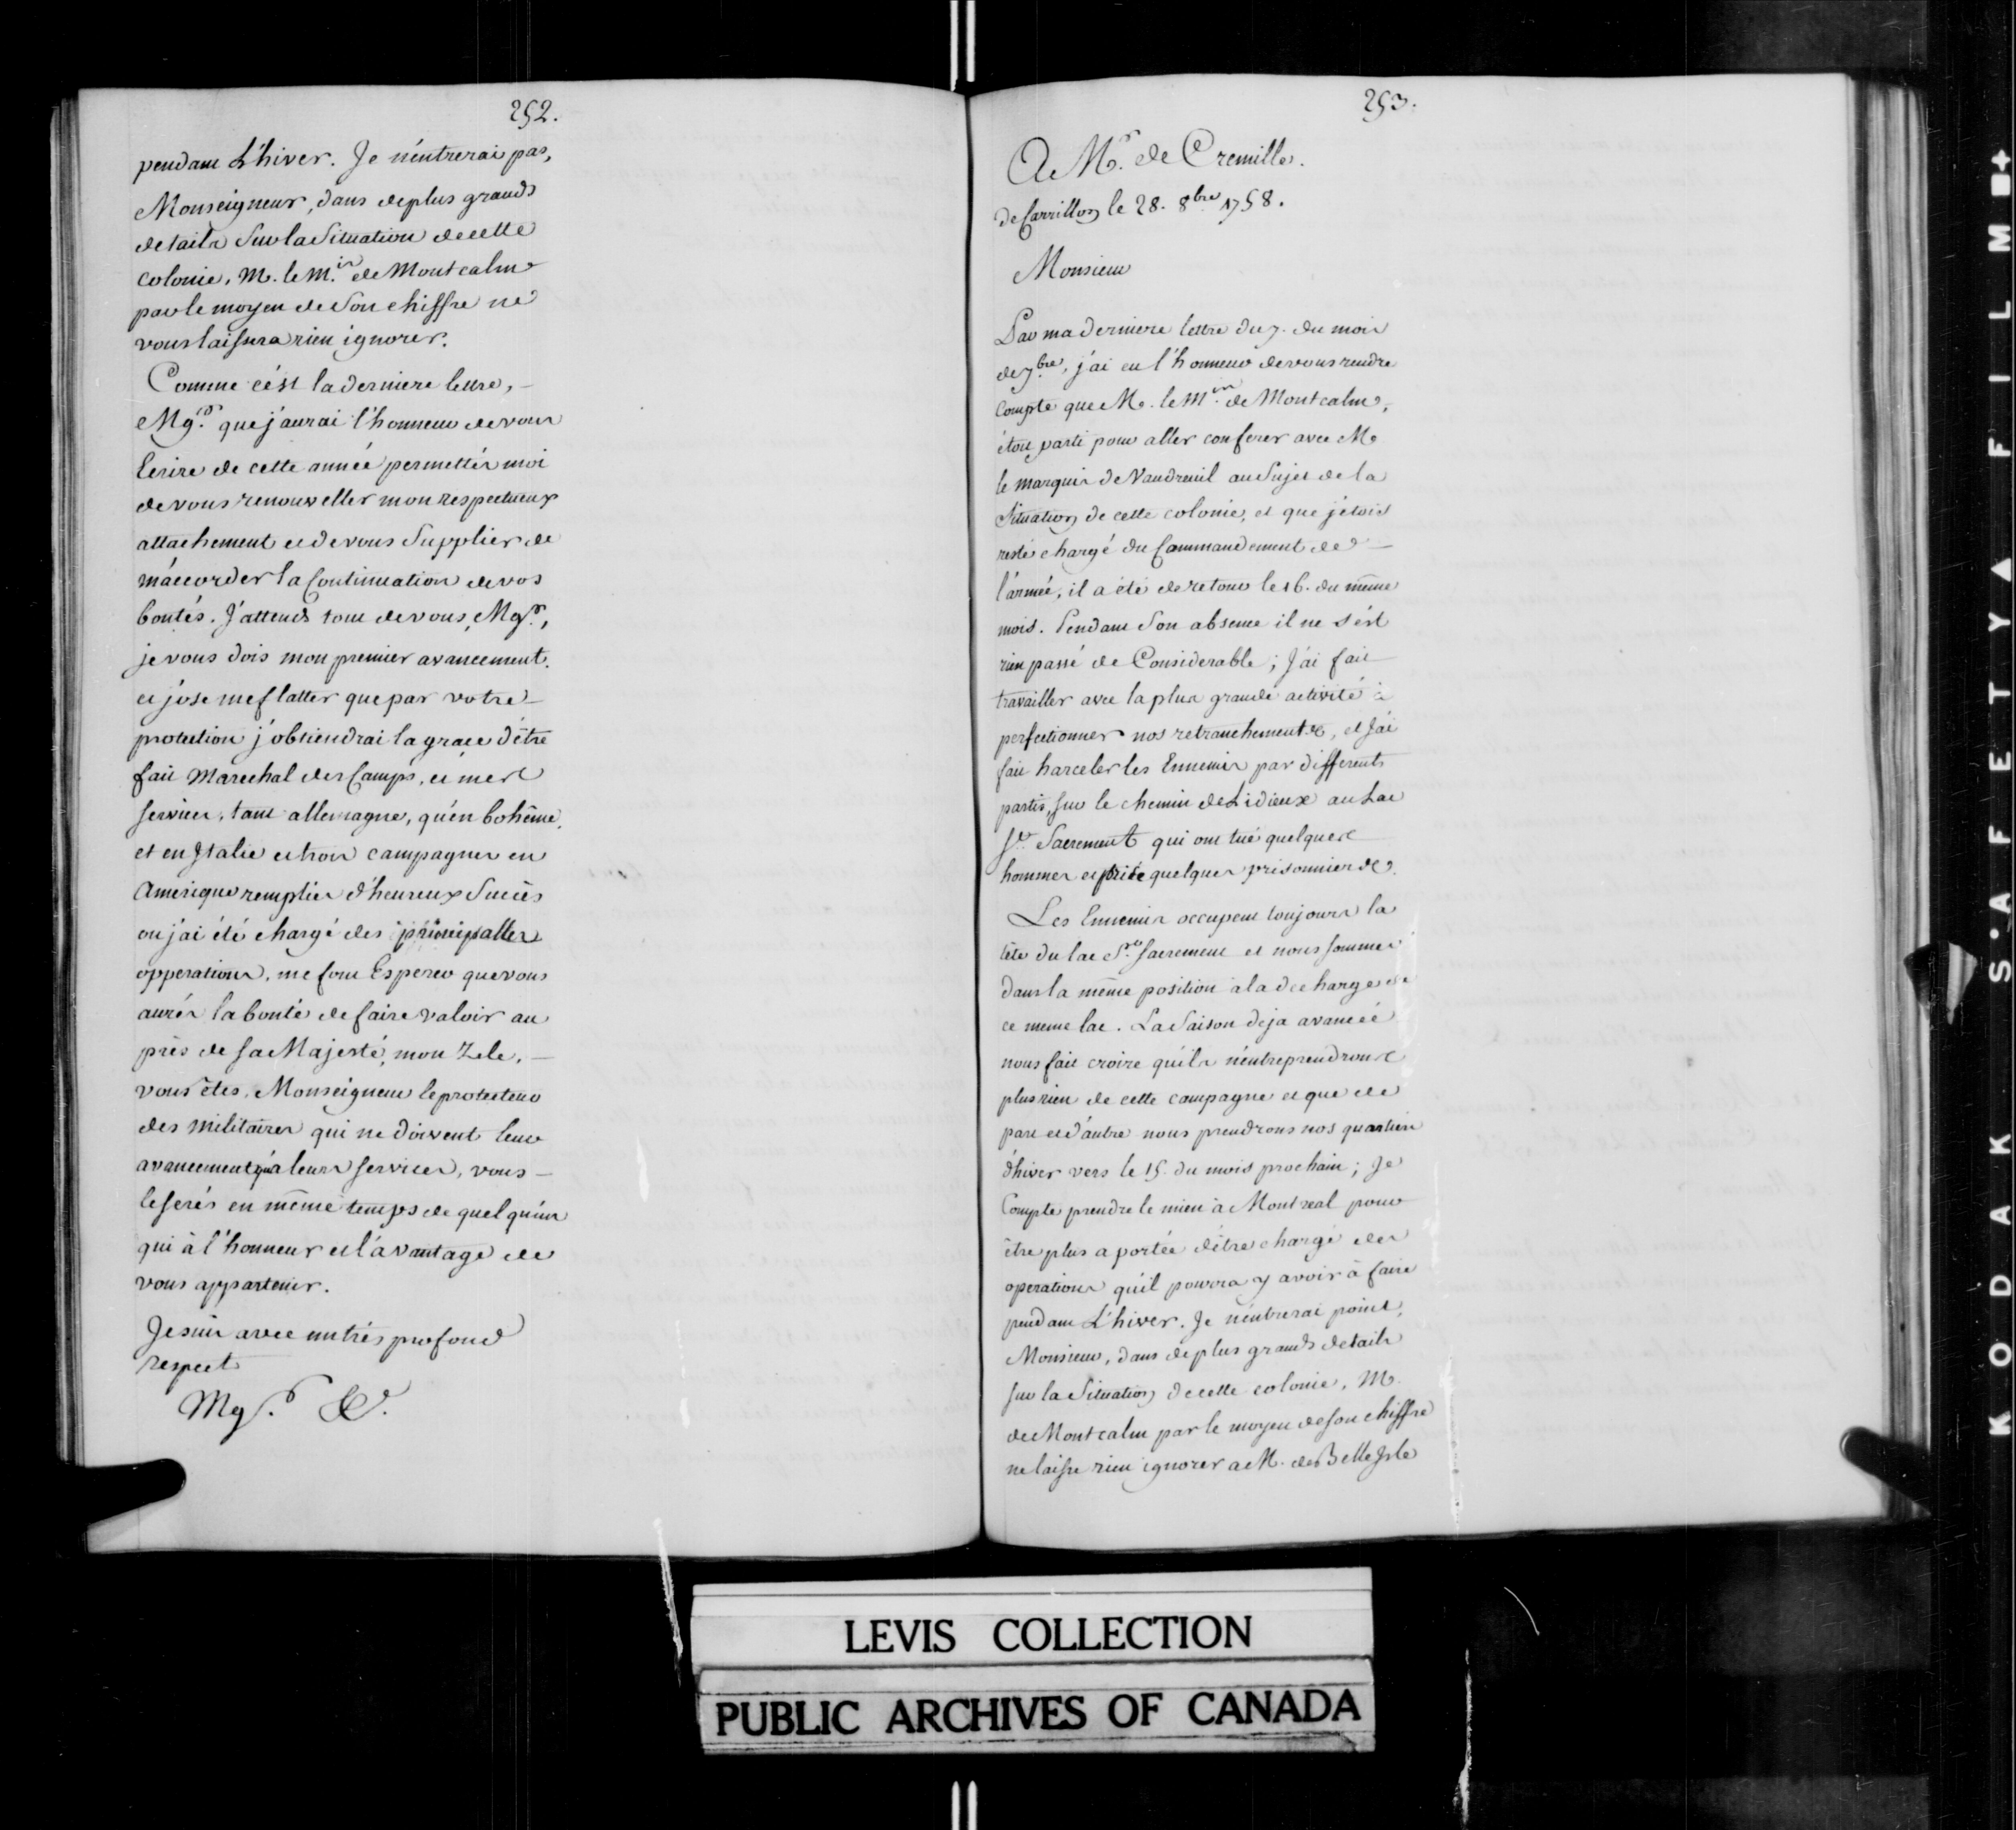 252.
pendant L'hiver. Je n'entrerai pas,
Monseigneur, dans de plus grands
details Sur la Situation de cette
colonie, M. le M.is de Montcalm
par le moyen de Son chiffre ne
vous laissera rien ignorer.
Comme c'est la derniere lettre,
Mgr. que j'aurai l'honneur de vous
Ecrire de cette année permettés moi
de vous renouveller mon respectueux
attachement et de vous Supplier de
m'accorder la Continuation de vos
bontés. J'attends tout de vous, Mgr.,
je vous dois mon premier avancement.
et j'ose me flatter que par votre
protection j'obtiendrai la grace d'être
fait Marechal des Camps, et mes
services, tant allemagne, qu'en bohême,
et en Italie et trois campagnes en
Amerique remplies d'heureux Succès
ou j'ai été chargé des principalles
opperations, me font Esperer que vous
aurés la bonté de faire valoir au
près de sa Majesté, mon Zele,
vous êtes, Monseigneur le protecteur
des militaires qui ne doivent leur
avancement qu'a leurs services, vous
le serés en même temps de quelqu'un
qui à l'honneur et l'avantage de
vous appartenir.
Je suis avec un très profond
respect
Mgr. &c.
253.
A Mr. de Cremilles.
de Carrillon le 28. 8bre 1758.
Monsieur
Par ma derniere lettre du 7. du mois
de 7bre, j'ai eu l'honneur de vous rendre
Compte que M. le M.is de Montcalm,
étoit parti pour aller conferer avec M.
le marquis de Vaudreuil au Sujet de la
Situation de cette colonie, et que j'étois
resté chargé du Commandement de
l'armée, il a été de retour le 16. du même
mois. Pendant Son absence il ne s'est
rien passé de Considerable; J'ai fait
travailler avec la plus grande activité à
perfectionner nos retranchements, et J'ai
fait harceler les Ennemis par differents
partis, sur le chemin de Lidieux au Lac
St. Sacrement qui ont tué quelques
hommes et pris quelques prisonniers.
Les Ennemis occupent toujours la
tête du lac St. Sacrement et nous sommes
dans la même position à la decharge de
ce meme lac. La Saison deja avancée
nous fait croire qu'ils n'entreprendront
plus rien de cette campagne et que de
part et d'autre nous prendrons nos quartiers
d'hiver vers le 15. du mois prochain; Je
Compte prendre le mien à Montreal pour
être plus a portée d'être chargé des
operations qu'il pourra y avoir à faire
pendant L'hiver. Je n'entrerai point,
Monsieur, dans de plus grands details
sur la Situation de cette colonie, M.
de Montcalm par le moyen de son chiffre
ne laisse rien ignorer a M. de Belle Isle
LEVIS COLLECTION
PUBLIC ARCHIVES OF CANADA
KODAK S·AFETY▲ FILM